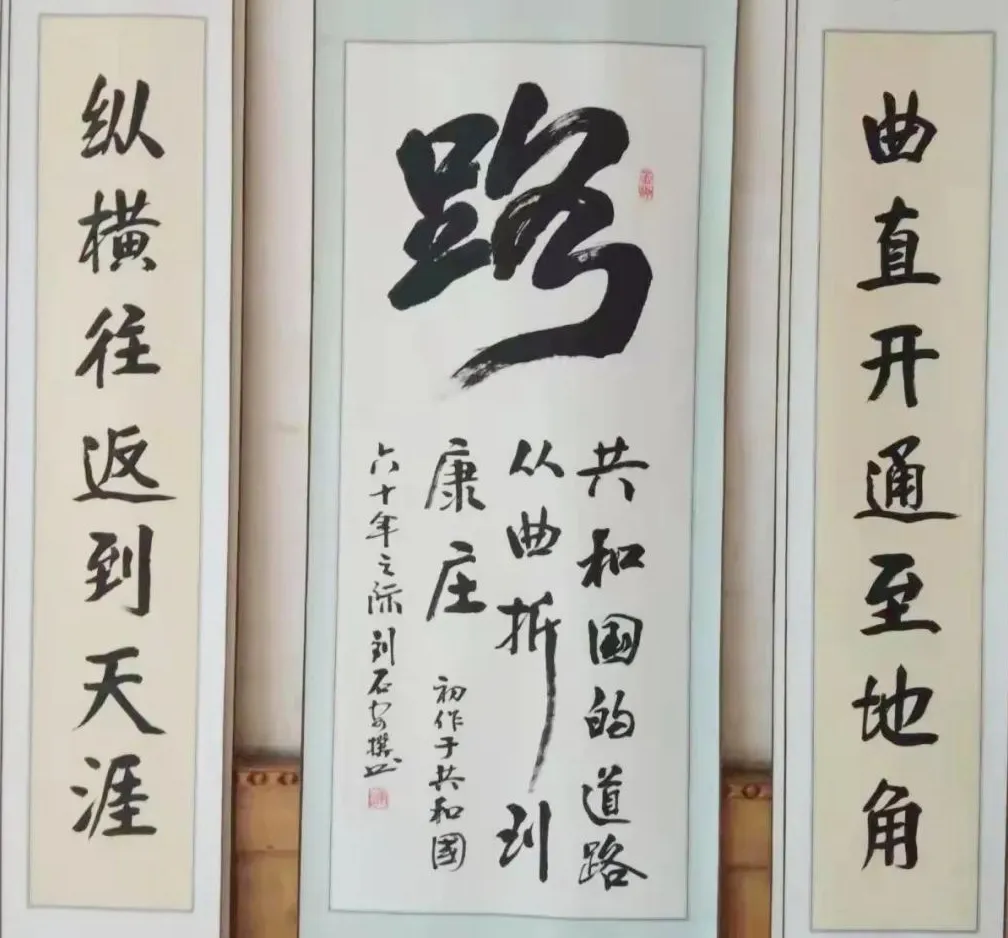 曲直开通至地角
路
共和国的道路
从曲折到
康庄
初作于共和國
六十年之际刘石安撰书
纵横往返到天涯